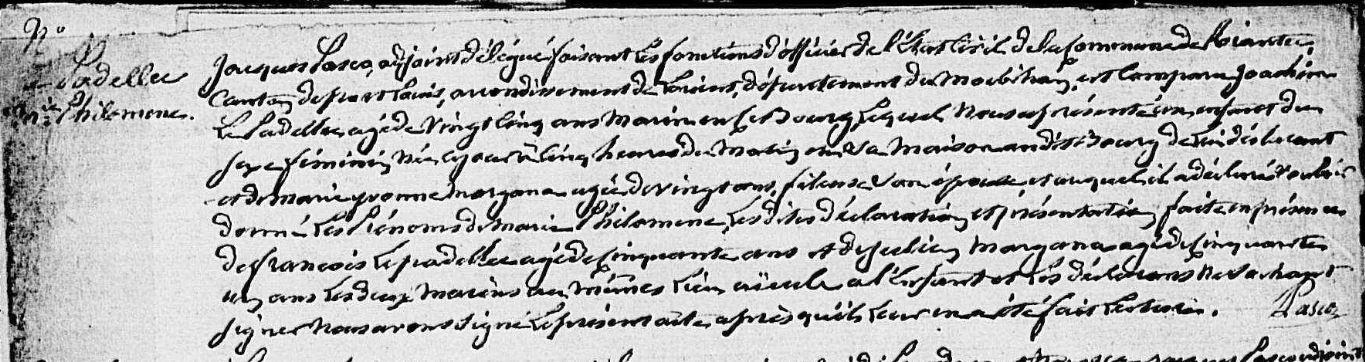 N°
Le Padellec
Mie Philomene.
Jacques Pasco, adjoint délégué faisant les fonctions d'officier de l'état Civil de la Commune de Riantec,
Canton de port Louis, arrondissement de Lorient, département du Morbihan, est Comparu Joachim
Le Padellec agé de vingt Cinq ans Marin en ce Bourg Lequel Nous a présenté un enfant du
sexe féminin, Née ce jour à Cinq heures du Matin en sa Maison audit Bourg de Lui déclarant
et de Marie yvonne Morgana agée de vingt ans, fileuse son épouse, et auquel il a déclaré vouloir
donner Les Prénoms de Marie Philomene, Les dites déclaration et présentation faite en présence
de françois Le padellec agé de Cinquante ans et de Julien Morgana agé de Cinquante
un ans Les deux Marins au Mêmes Lieu aïeuls a l'Enfant et Les déclarans Ne sachant
signer Nous avons signé Le présent acte après qu'il Leur en a été fait Lecture.
Pasco